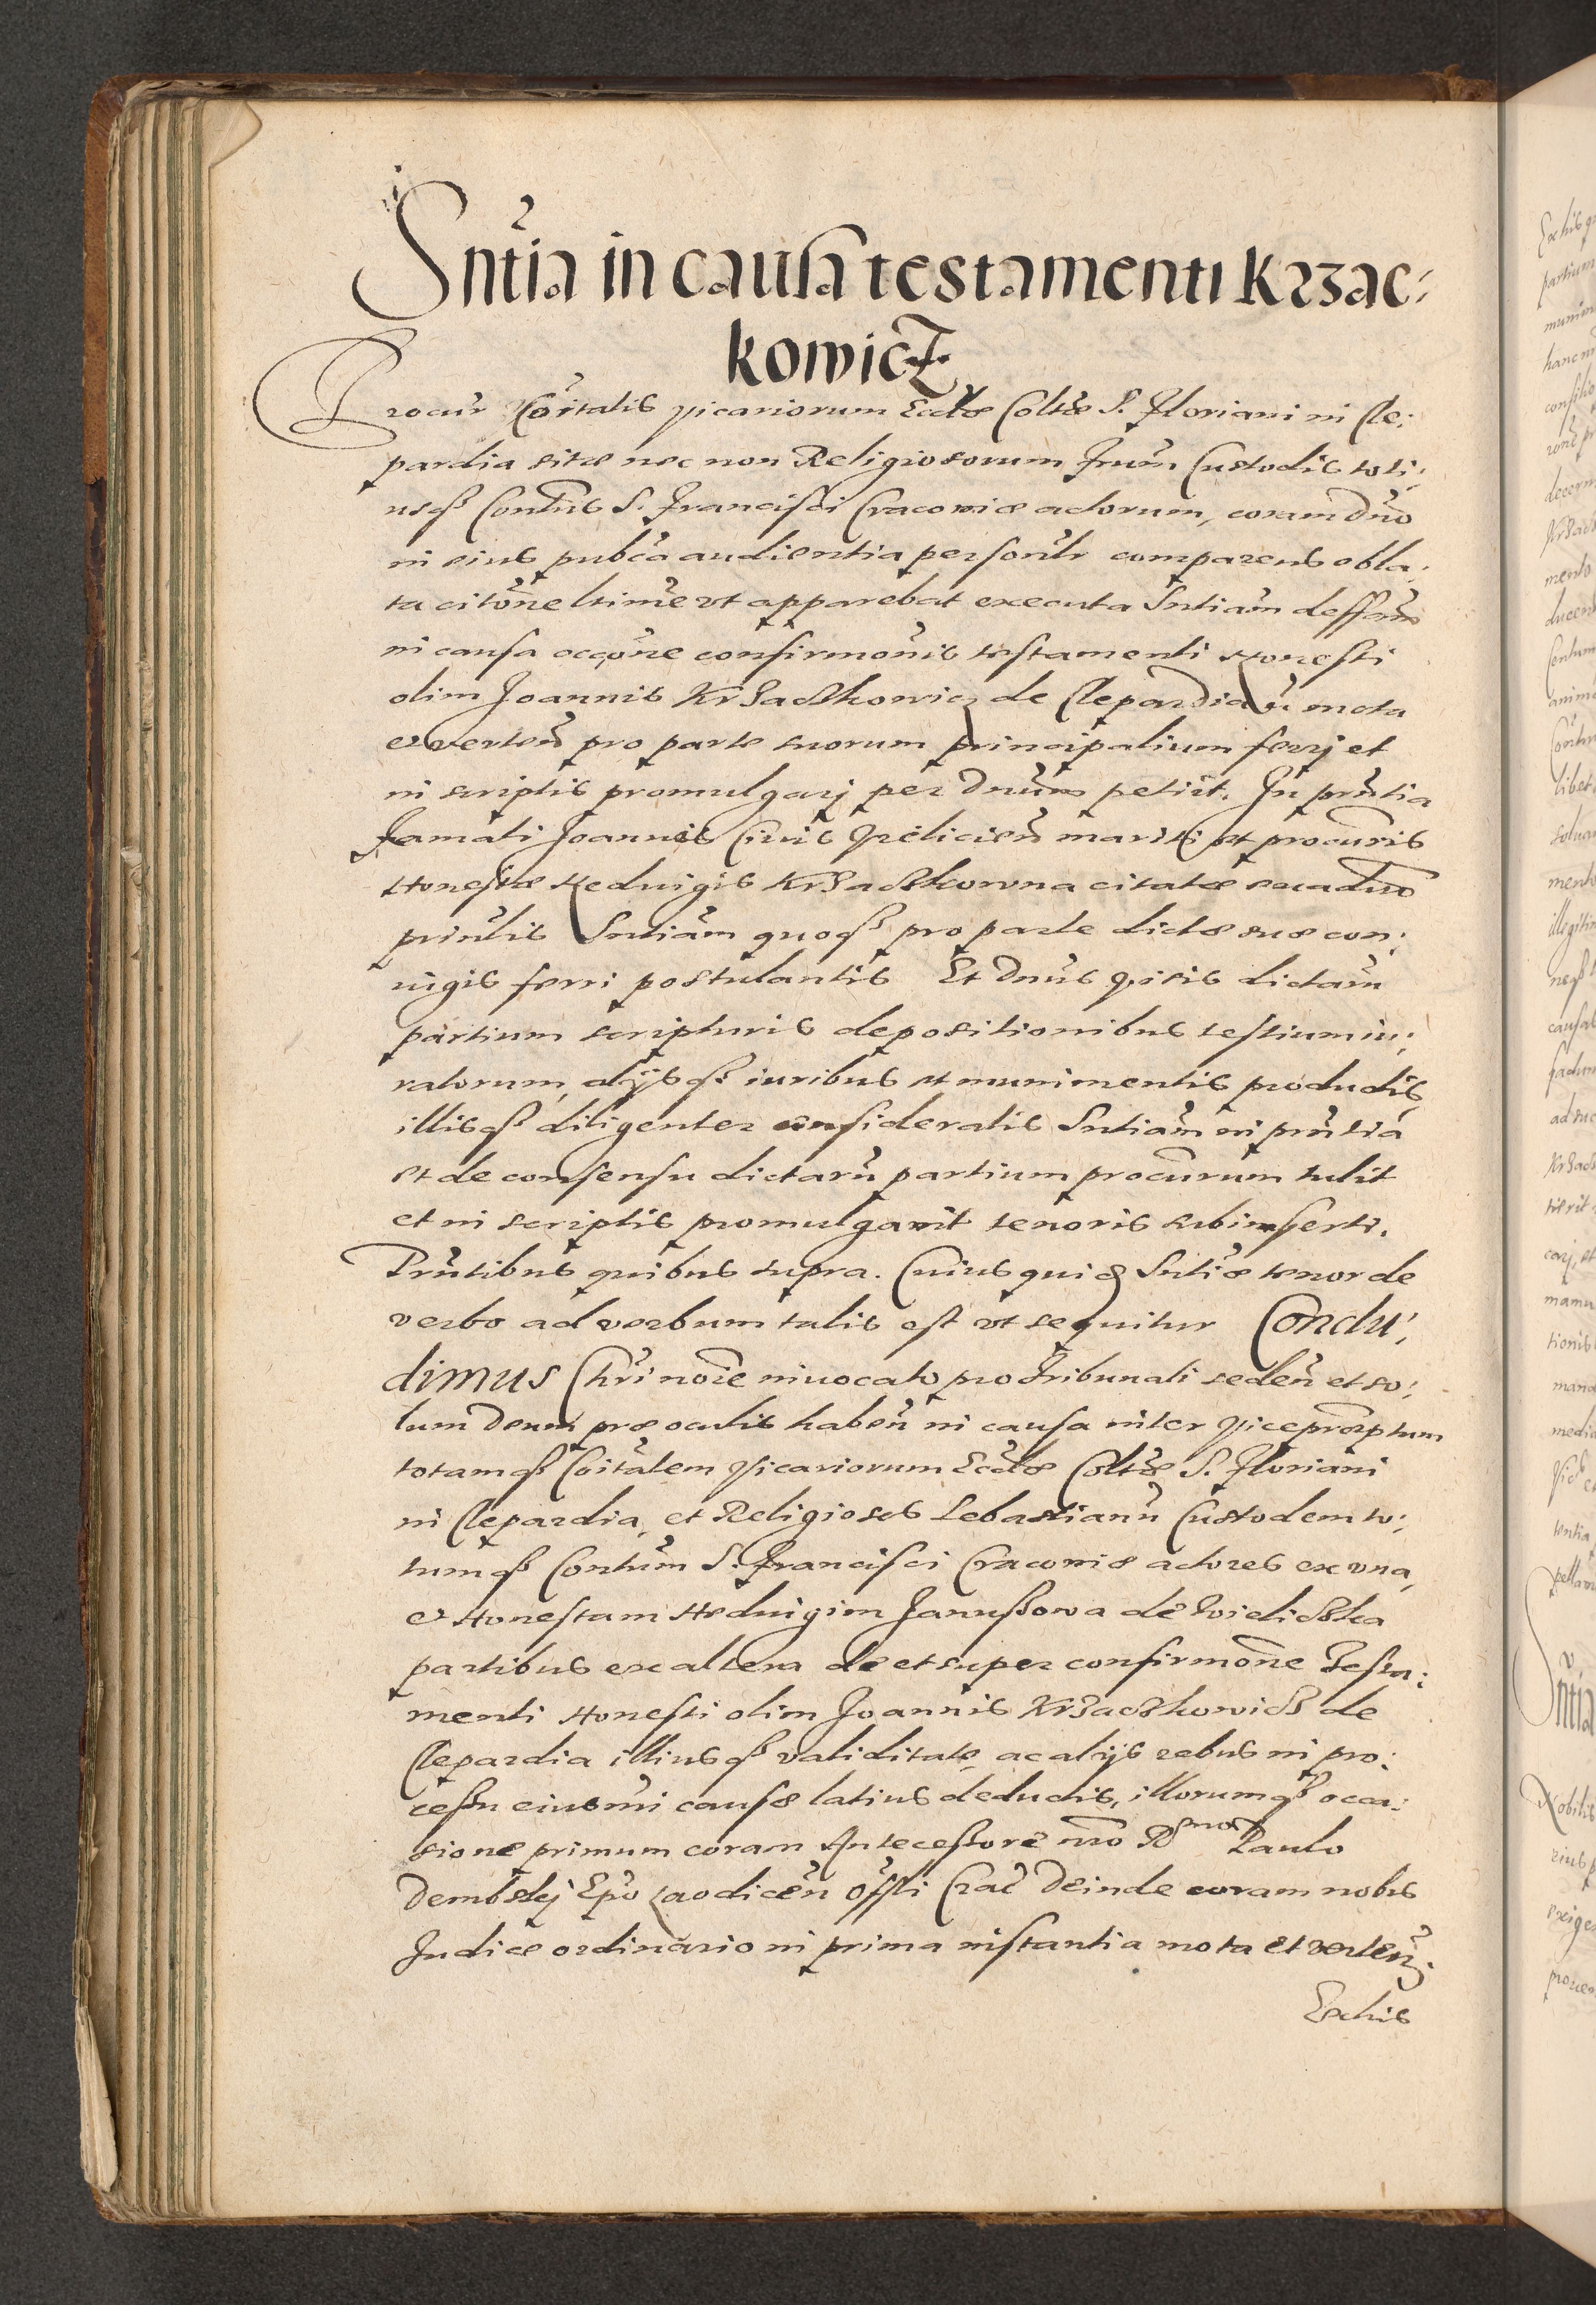 Sntia in causa testamenti Krzac-
kowicz
Procur Coitatis Vicariorum Ecclæ Coltæ S. Floriani in Cle-
pardia sitæ nec non Religiosorum frum Custodis toti-
usq Contus S. Francisci Cracoviæ actorum, coram Dno
in eius pubca audientia personlr comparens obla-
ta citone ltime vt apparebat executa Sntiam deffam
in causa occone confirmonis testamenti Honesti
olim Joannis Krzaczkowicz de Clepardia n mota
et verten pro parte suorum principalium ferrj et
in scriptis promulgarj per Dnum petiit. In pntia
Famati Joannis Civis Velicien mariti et procuris
Honestæ Hedvigis Krzaczkowna citatæ ea Dno
printis Sntiam quoq pro parte dictæ suæ con-
iugis ferri postulantis Et Dnus visis dictarum
partium scripturis depositionibus testium iu-
ratorum, alijsq iuribus et munimentis productis,
illisq diligenter consideratis Sntiam in pntia
et de consensu dictaru partium procurum tulit
et in scriptis promulgavit tenoris subinserti.
Pntibus quibus supra. Cuius quid Sntiæ tenor de
verbo ad verbum talis est vt sequitur Conclu-
dimus Chri noie invocato pro Tribunali seden et so-
lum Deum præ oculis haben in causa inter Viceproptum
totamq Coitatem Vicariorum Ecclæ Coltæ S. Floriani
in Clepardia, et Religiosos Sebastianu Custodem to-
tumq Contum S. Francisci Cracoviæ actores ex vna,
et Honestam Hedvigim Janussowa de Wieliczka
partibus ex altera de et super confirmone Testa-
menti Honesti olim Joannis Krzaczkowicz de
Clepardia illiusq validitate, ac alijs rebus in pro-
cessu eiusmi causæ latius deductis, illorumq occa-
sione primum coram Antecessore nro Rsmo Paulo
Dembskj Epo Laodicen Offli Crac Deinde coram nobis
Judice ordinario in prima instantia mota et verten.
Ex his